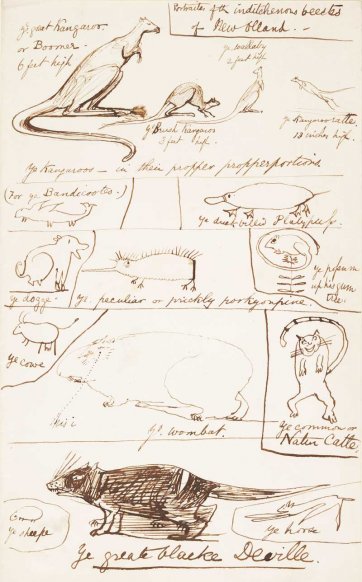 Portraites of the inditchenous beestes
of New Olland..
Ye great Kangaroo
or Boomer.
6 feet high
Ye wallaby
2 feet high
Ye Brush Kangaroo
3 feet high.
Ye Kangaroo ratte
18 inches high.
Ye Kangaroos — in their propper propperportions
(For ye Bandicootes.)
Ye duck billed Platypus.
Ye dogge.
Ye peculiar or prickly porkyonpine.
Ye possum
up his gum
tree.
Ye cowe
Ye wombat.
Ye common or
Natur Catte.
Ye sheepe
Ye horse
Ye greate blacke Deville.